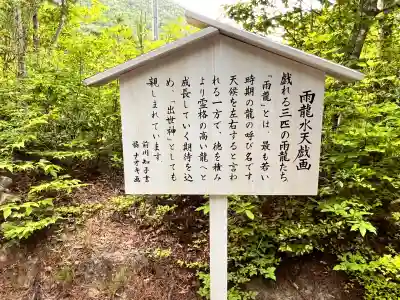 雨龍水天戯画
戯れる三匹の雨龍たち。
「雨龍」とは、最も若い
時期の龍の呼び名です。
天候を左右すると言わ
れる一方で、徳を積み
より霊格の高い龍へと
成長していく期待を込
め、「出世神」としても
親しまれています。
前川知子書